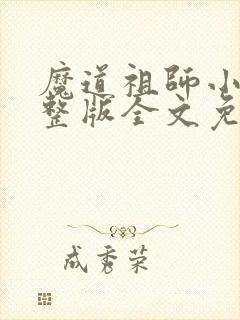 魔道祖師小
整版全文免
成秀荣